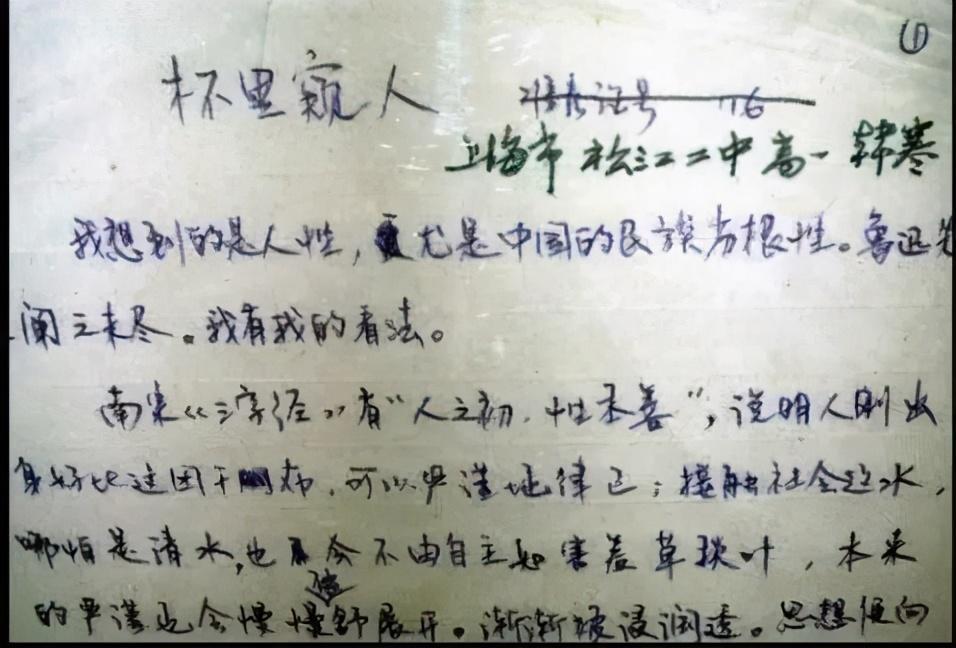 ①
杯里窥人
准考证号 116
上海市 松江二中 高一 韩寒
我想到的是人性，尤是中国的民族劣根性。鲁迅先
阐之未尽。我有我的看法。
南宋《三字经》有"人之初，性本善"，说明人刚出
身好比这团干布，可以严谨地律己；接触社会这水，
哪怕是清水，也会不由自主如害羞草拢叶，本来
的严谨也会慢慢舒展开。渐渐被浸润透。思想便向